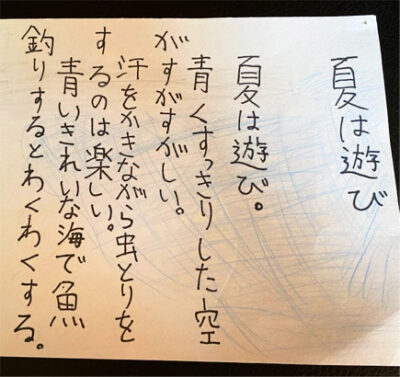 夏は遊び
夏は遊び。
青くすっきりした空
がすがすがしい。
汗をかきながら虫とりを
するのは楽しい。
青いきれいな海で魚
釣りするとわくわくする。